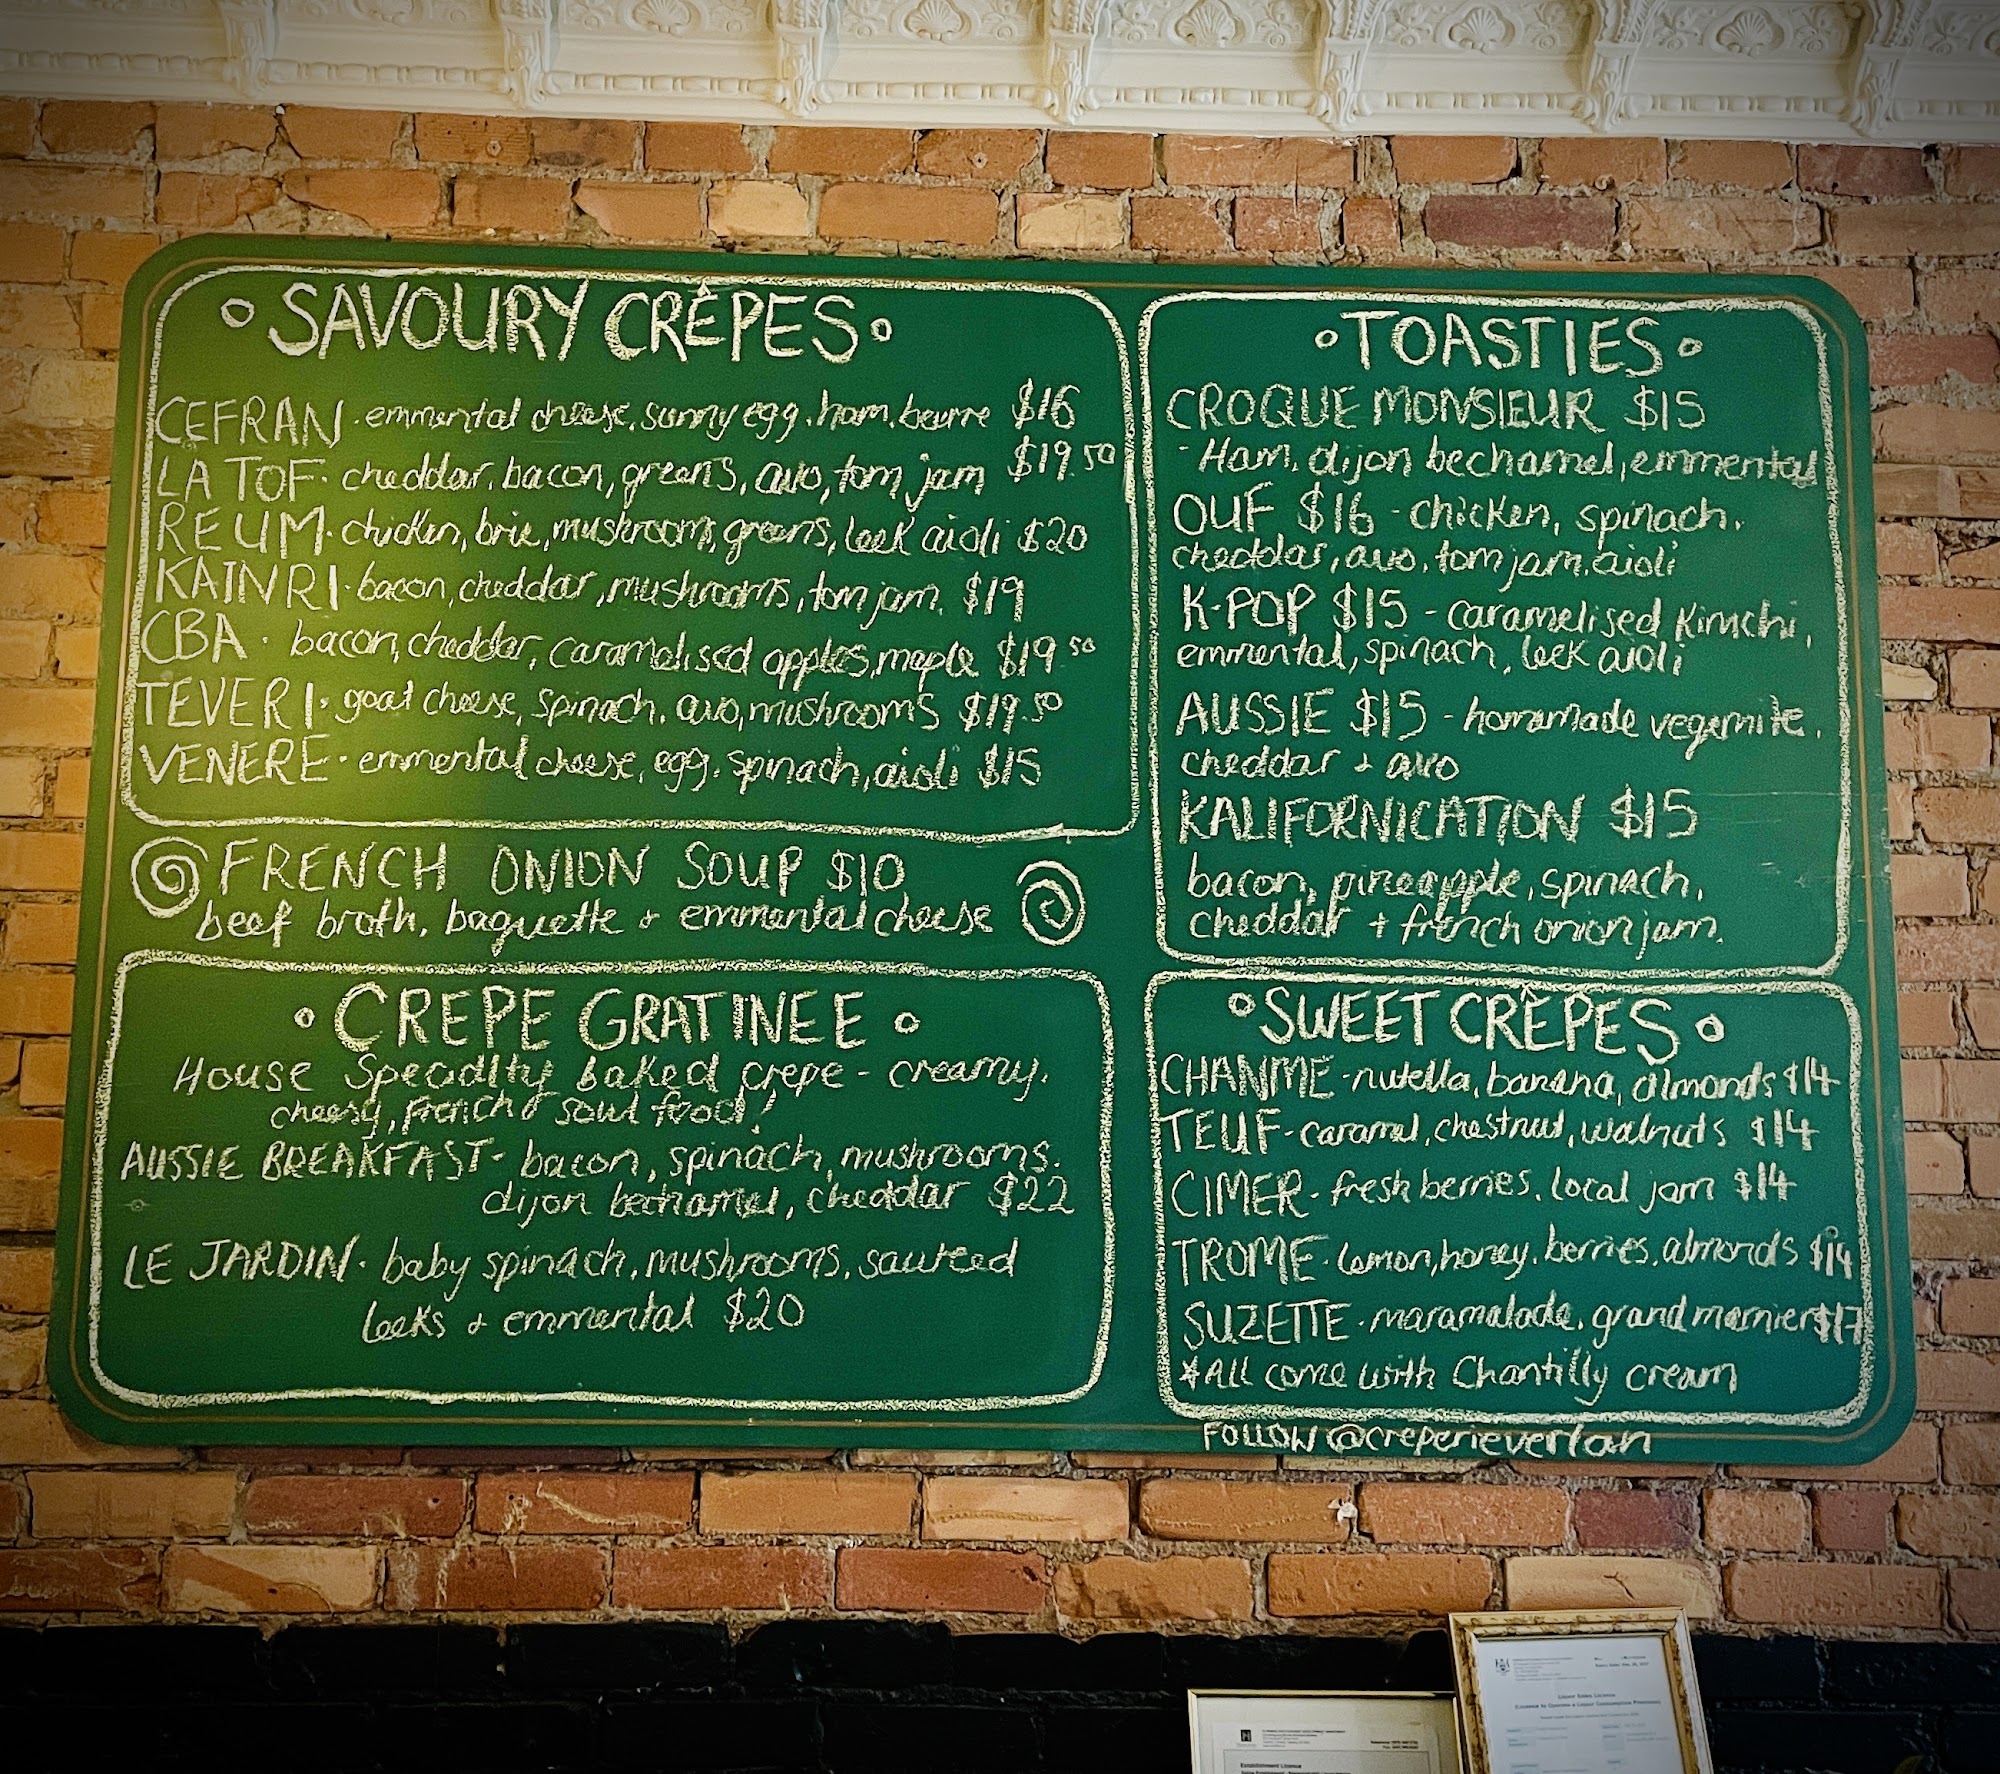 SAVOURY CRÊPES
CEFRAN · emmental cheese, sunny egg, ham, beurre $16
LA TOF · cheddar, bacon, greens, avo, tom jam $19.50
REUM · chicken, brie, mushrooms, greens, leek aioli $20
KAINRI · bacon, cheddar, mushrooms, tom jam. $19
CBA · bacon, cheddar, caramelised apples, maple $19 50
TEVERI · goat cheese, spinach, avo, mushrooms $19.50
VENERE · emmental cheese, egg, spinach, aioli $15
FRENCH ONION SOUP $10
beef broth, baguette + emmental cheese
CREPE GRATINEE
House Specialty baked crepe - creamy,
cheesy, french & soul food!
AUSSIE BREAKFAST - bacon, spinach, mushrooms,
dijon bechamel, cheddar $22
LE JARDIN · baby spinach, mushrooms, sauteed
leeks + emmental $20
TOASTIES
CROQUE MONSIEUR $15
- Ham, dijon bechamel, emmental
OUF $16 - chicken, spinach,
cheddar, avo, tom jam, aioli
K-POP $15 - caramelised kimchi,
emmental, spinach, leek aioli
AUSSIE $15 - homemade vegemite,
cheddar + avo
KALIFORNICATION $15
bacon, pineapple, spinach,
cheddar + french onion jam.
SWEET CRÊPES
CHANME - nutella, banana, almonds $14
TEUF - caramel, chestnut, walnuts $14
CIMER - fresh berries, local jam $14
TROME · lemon, honey, berries, almonds $14
SUZETTE · maramalade, grand marnier $17
*All come with Chantilly cream
FOLLOW @creperieverlan
Liquor Sales Licence
Establishment Licence